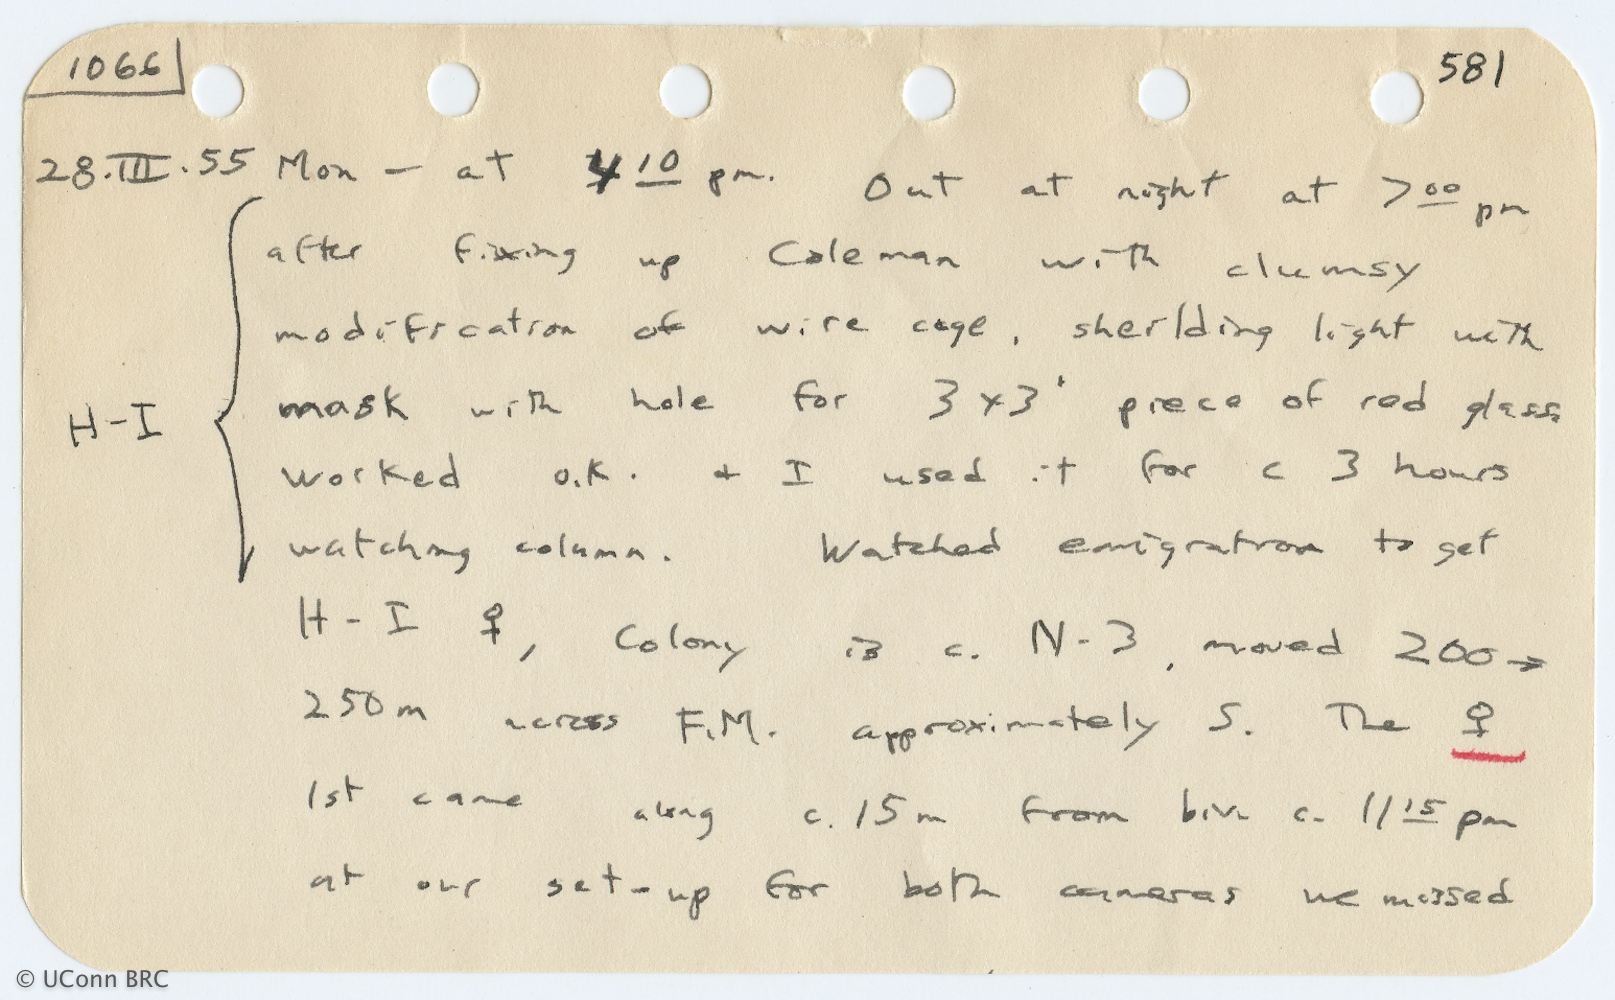 1066
581
28.III.55 Mon - at 4 10 pm. Out at night at 7 00 pm
after fixing up Coleman with clumsy
modification of wire cage, sheilding light with
H-I mask with hole for 3x3' piece of red glass
worked o.k. + I used it for c 3 hours
watching column. Watched emigration to get
H-I ♀, Colony is c. N-3, moved 200→
250m across F.M. approximately S. The ♀
1st came along c. 15m from biv. c. 11 15 pm
at our set-up for both cameras we missed
© UConn BRC